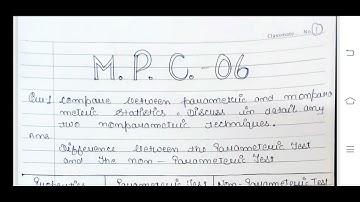 Classmate No. 1
M. P. C. - 06
Que 1 compare between parametric and nonpara
metric statistics. Discuss in detail any
two nonparametric techniques.
Ans
Difference between the Parameteric Test
and the non - Parameteric Test
Parameteric Test Non-Parameteric Test